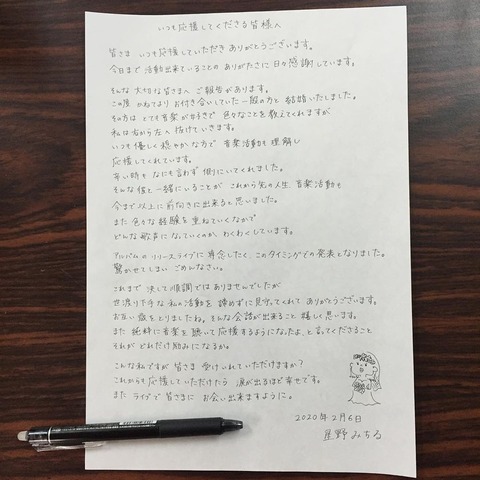 いつも応援してくださる皆様へ
皆さま いつも応援していただき ありがとうございます。
今日まで 活動出来ていることの ありがたさに 日々感謝しています。
そんな 大切な皆さまへ ご報告があります。
この度 かねてより お付き合いしていた 一般の方と 結婚いたしました。
その方は とても音楽が好きで 色々なことを 教えてくれますが
私は右から左へ 抜けていきます。
いつも優しく 穏やかな方で 音楽活動も 理解し
応援してくれています。
辛い時も なにも言わず 側にいてくれました。
そんな彼と 一緒にいることが これから先の人生、音楽活動も
今まで以上に 前向きに出来ると思いました。
また 色々な 経験を 重ねていくなかで
どんな歌声に なっていくのか、わくわくしています。
アルバムの リリースライブに 専念したく、このタイミングでの発表となりました。
驚かせてしまい ごめんなさい。
これまで 決して順調では ありませんでしたが
世渡り下手な 私の活動を 諦めずに 見守ってくれて ありがとうございます。
お互い 歳をとりましたね。そんな会話が出来ること 嬉しく思います。
また 純粋に音楽を 聴いて 応援するようになったよ、と言ってくださること
それが どれだけ励みになるか。
こんな私ですが 皆さま 受けいれていただけますか?
これからも 応援していただけたら 涙が出るほど幸せです。
また ライブで 皆さまに お会い出来ますように。
2020年2月6日
星野みちる